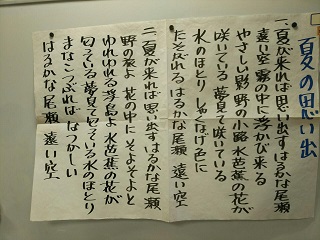 夏の思い出
一、夏が来れば思い出すはるかな尾瀬
遠い空 霧の中に浮かび来る
やさしい影 野の小路 水芭蕉の花が
咲いている 夢見て咲いている
水のほとり しゃくなげ色に
たそがれる はるかな尾瀬 遠い空
二、夏が来れば思い出すはるかな尾瀬
野の旅よ 花の中にそよそよと
ゆれゆれる浮島よ 水芭蕉の花が
匂っている 夢見て匂っている水のほとり
まなこつぶればなつかしい
はるかな尾瀬 遠い空